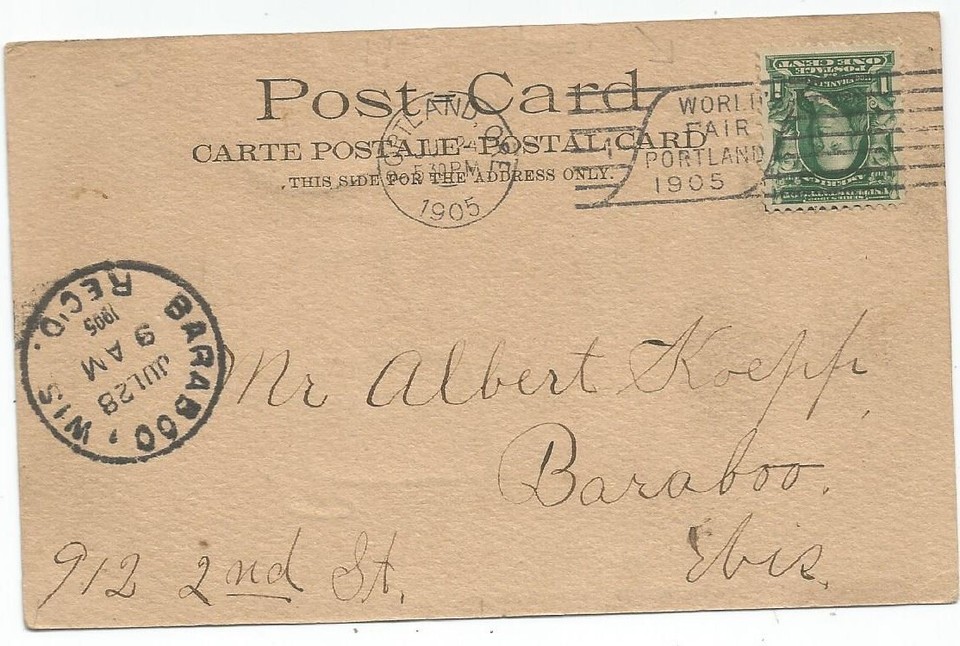 Post-Card
CARTE POSTALE-POSTAL CARD
THIS SIDE FOR THE ADDRESS ONLY.
PORTLAND, ORE
5 30 PM
1905
1
WORLD'S
FAIR
PORTLAND
1905
POSTAGE
ONE CENT
BARABOO, WIS.
REC'D.
1905
9 AM
JUL 28
Mr Albert Koepp,
Baraboo.
Wis.
912 2nd St.